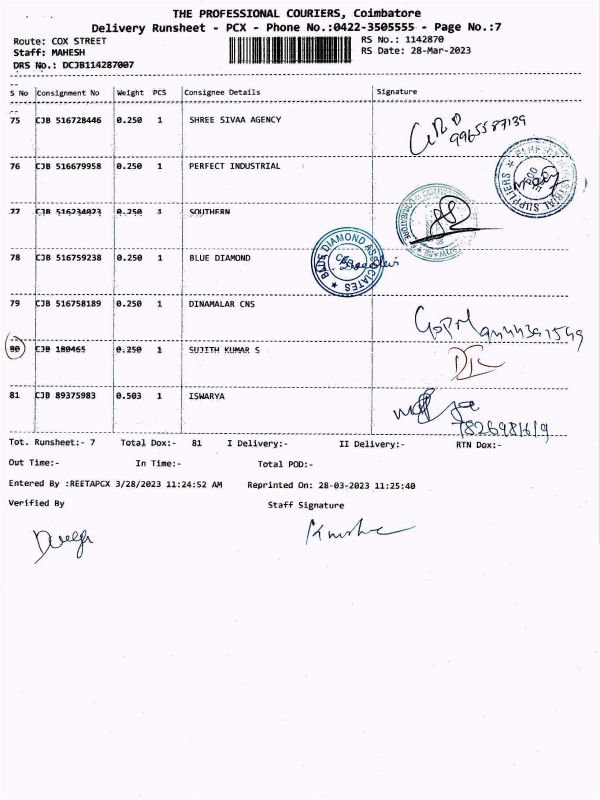 THE PROFESSIONAL COURIERS, Coimbatore
Delivery Runsheet - PCX - Phone No.:0422-3505555 - Page No.:7
Route: COX STREET
RS No.: 1142870
Staff: MAHESH
RS Date: 28-Mar-2023
DRS No.: DCJB114287007
S No Consignment No Weight PCS Consignee Details Signature
75 CJB 516728446 0.250 1 SHREE SIVAA AGENCY
9965587139
76 CJB 516679958 0.250 1 PERFECT INDUSTRIAL
77 CJB 516234023 0.250 1 SOUTHERN
78 CJB 516759238 0.250 1 BLUE DIAMOND
BLUE DIAMOND ASSOCIATES
79 CJB 516758189 0.250 1 DINAMALAR CNS
80 CJB 180465 0.250 1 SUJITH KUMAR S
81 CJB 89375983 0.503 1 ISWARYA
7826981619
Tot. Runsheet:- 7 Total Dox:- 81 I Delivery:- II Delivery:- RTN Dox:-
Out Time:- In Time:- Total POD:-
Entered By :REETAPCX 3/28/2023 11:24:52 AM Reprinted On: 28-03-2023 11:25:40
Verified By Staff Signature